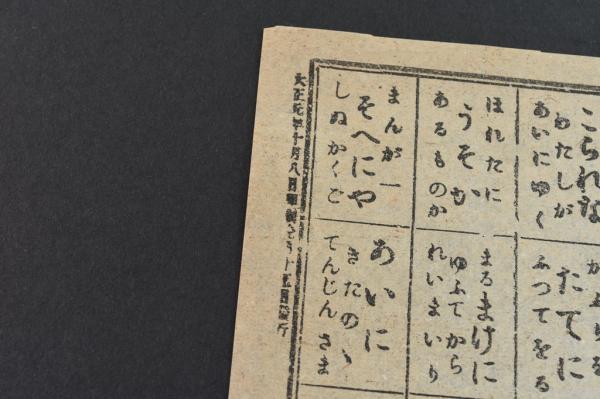 こられな
わたしが
あいにゆく
ほれたに
うそも
あるものか
まんが一
そへにや
しぬかくご
かぶりを
たてに
ふつてをる
まるまけに
ゆふてから
れいまいり
あいに
きたのゝ
てんじんさま
大正元年十月八日印刷仝月十五日發行